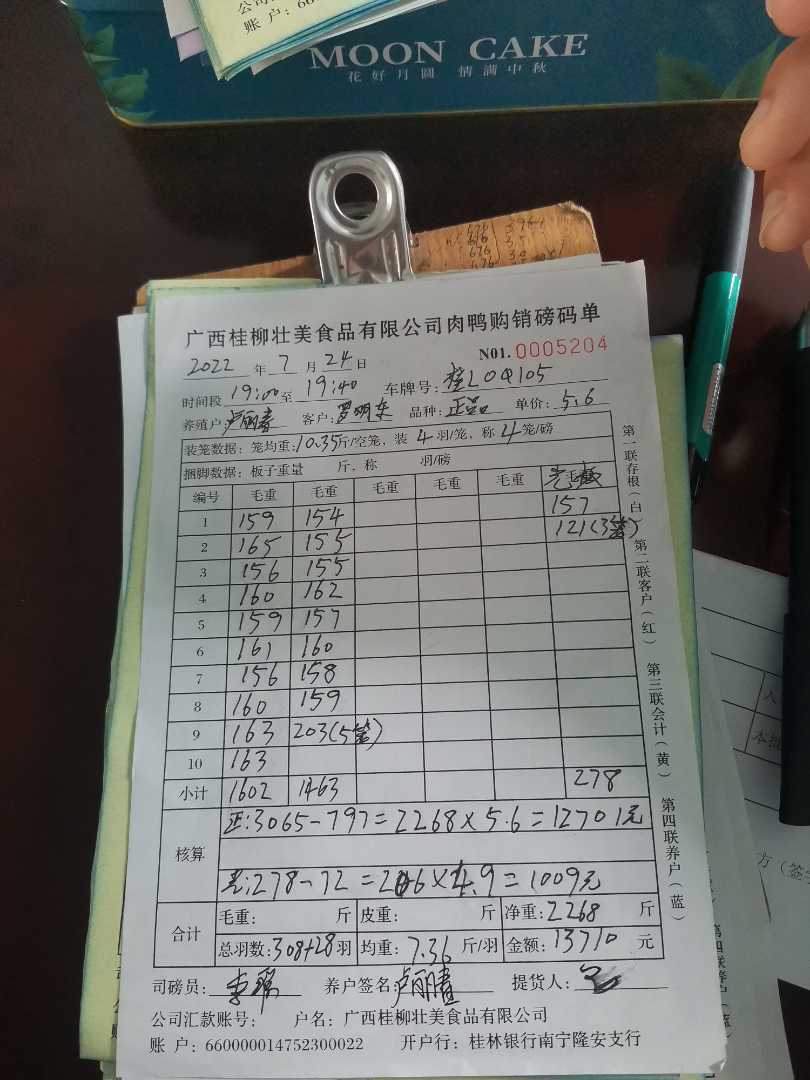 公司
账 户：66
MOON CAKE
花好月圆 情满中秋
广西桂柳壮美食品有限公司肉鸭购销磅码单
2022 年 7 月 24 日 N01. 0005204
时间段 19:00 至 19:40 车牌号：桂L0Q105
养殖户：卢丽春 客户：罗明东 品种：正品 单价：5.6
装笼数据：笼均重：10.35斤/空笼，装 4 羽/笼，称 4 笼/磅
捆脚数据：板子重量 斤，称 羽/磅
编号 毛重 毛重 毛重 毛重 毛重
1 159 154 157
2 165 155 121(3笼)
3 156 155
4 160 162
5 159 157
6 161 160
7 156 158
8 160 159
9 163 203(5笼)
10 163
小计 1602 1463 278
核算 正:3065-797=2268×5.6=12701元
278-72=206×4.9=1009元
合计 毛重： 斤 皮重： 斤 净重：2268 斤
总羽数：308+28羽 均重：7.36 斤/羽 金额：13710 元
司磅员： 养户签名：卢丽春 提货人：
公司汇款账号： 户名：广西桂柳壮美食品有限公司
账 户：660000014752300022 开户行：桂林银行南宁隆安支行
第一联存根（白） 第二联客户（红） 第三联会计（黄） 第四联养户（蓝）